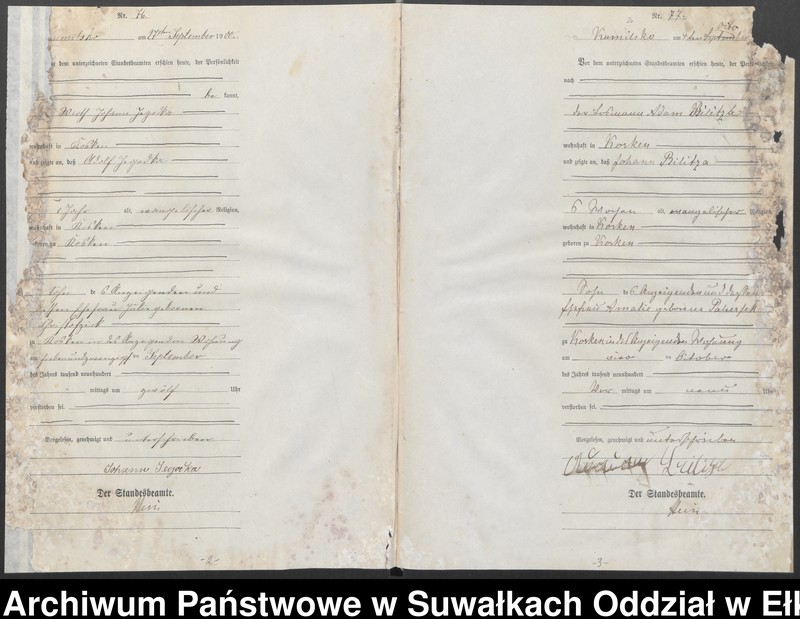 Nr. 76.
am 27ten September 1900.
dem unterzeichneten Standesbeamten erschien heute, der Persönlichkeit
be kannt,
Johann Jegodka
wohnhaft in Kosken
und zeigte an, daß Adolf Jegodka
1 Jahr alt, evangelischer Religion,
wohnhaft in Kosken
geboren zu Kosken
Sohn des Anzeigenden und
Ehefrau geborenen
zu Kosken in des Anzeigenden Wohnung
am siebenundzwanzigsten September
des Jahres tausend neunhundert
mittags um zwölf Uhr
verstorben sei.
Vorgelesen, genehmigt und unterschrieben
Johann Jegodka
Der Standesbeamte.
Hein
-2-
Nr. 77.
Kumilsko am 4ten
Vor dem unterzeichneten Standesbeamten erschien heute, der Persönlichkeit
nach
der Losmann Adam Bilitza
wohnhaft in Korken
und zeigte an, daß Johann Bilitza
6 Wochen alt, evangelischer Religion,
wohnhaft in Korken
geboren zu Korken
Sohn des Anzeigenden und dessen
Ehefrau Amalie geborene
zu Korken in des Anzeigenden Wohnung
am vier Oktober
des Jahres tausend neunhundert
Vor mittags um neun Uhr
verstorben sei.
Vorgelesen, genehmigt und unterschrieben
Der Standesbeamte.
Hein
-3-
Archiwum Państwowe w Suwałkach Oddział w Ełk